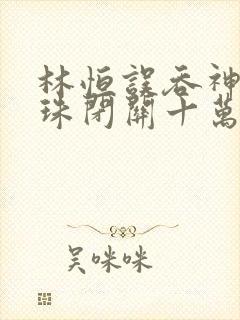 林恒誤吞神
珠閉關十萬
吴咪咪